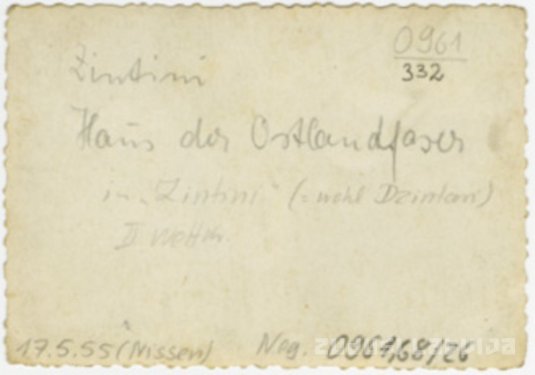 0961
332
Zintini
Haus der Ostlandfaser
in „Zintini“ (= wohl Dzintari)
II
17.5.55 (Nissen) Neg. 0961,68/26